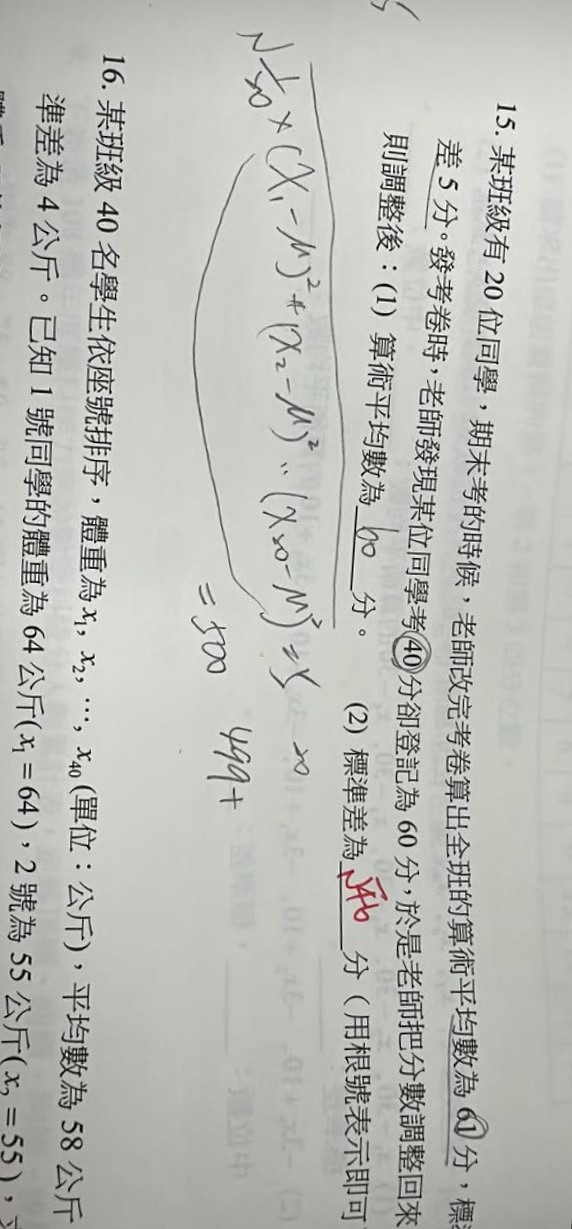 15. 某班級有 20 位同學，期末考的時候，老師改完考卷算出全班的算術平均數為 61 分，標
差 5 分。發考卷時，老師發現某位同學考 40 分卻登記為 60 分，於是老師把分數調整回來
則調整後：(1) 算術平均數為 60 分。 (2) 標準差為 √46 分（用根號表示即可
√1/20 × (x₁-μ)²+(x₂-μ)² ‥ (x₂₀-μ)² = 5
20
= 500
499+
16. 某班級 40 名學生依座號排序，體重為 x₁, x₂, …, x₄₀ (單位：公斤)，平均數為 58 公斤
準差為 4 公斤。已知 1 號同學的體重為 64 公斤(x₁ = 64)，2 號為 55 公斤(x₂ = 55)，